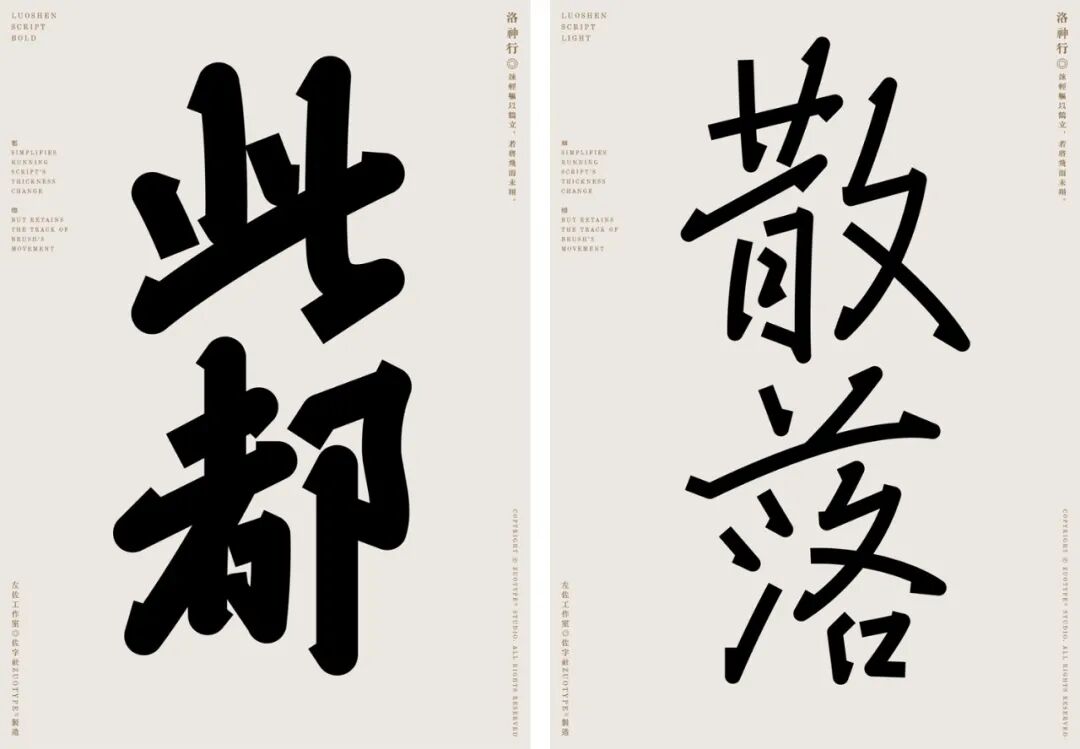 LUOSHEN
SCRIPT
BOLD
洛神行◎竦輕軀以鶴立，若將飛而未翔。
SIMPLIFIES
RUNNING
SCRIPT'S
THICKNESS
CHANGE
BUT RETAINS
THE TRACK OF
BRUSH'S
MOVEMENT
此
都
左佐工作室◎佐字社ZUOTYPE®製造
COPYRIGHT © ZUOTYPE® STUDIO. ALL RIGHTS RESERVED.
LUOSHEN
SCRIPT
LIGHT
洛神行◎竦輕軀以鶴立，若將飛而未翔。
SIMPLIFIES
RUNNING
SCRIPT'S
THICKNESS
CHANGE
BUT RETAINS
THE TRACK OF
BRUSH'S
MOVEMENT
散
落
左佐工作室◎佐字社ZUOTYPE®製造
COPYRIGHT © ZUOTYPE® STUDIO. ALL RIGHTS RESERVED.